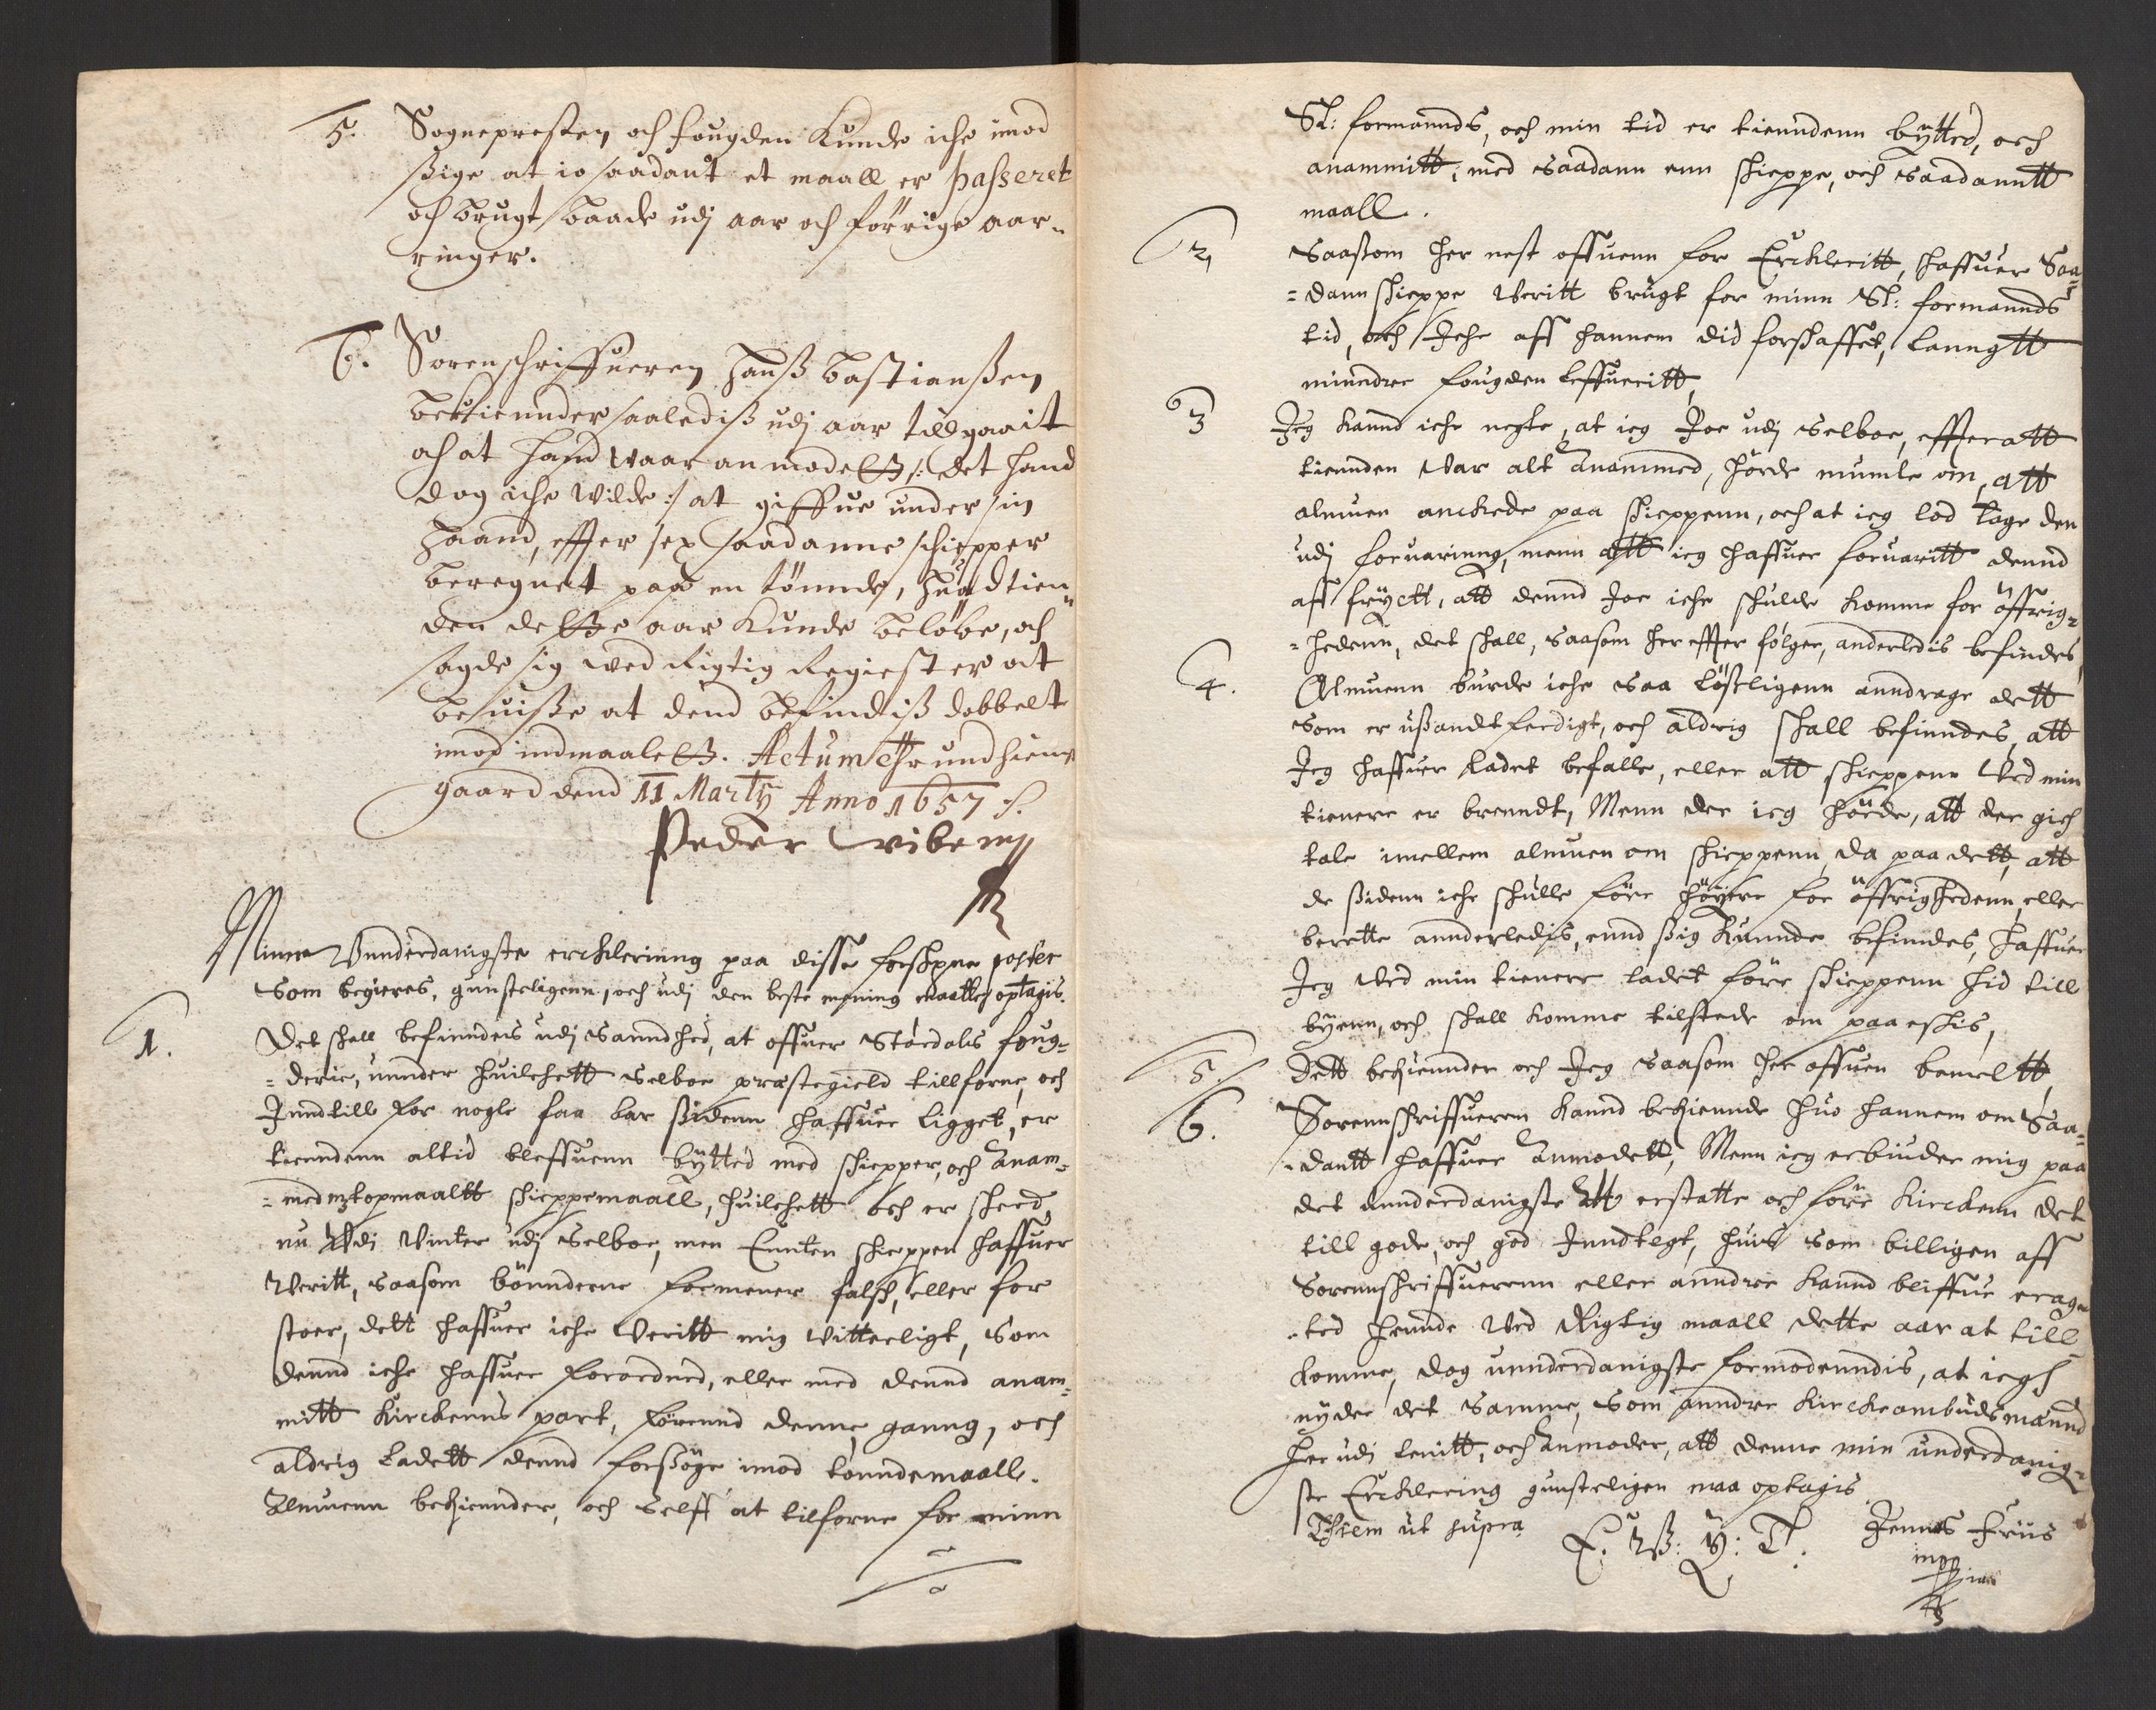 5. Sognepresten och fougden Kunde iche imod
sige at io saadant et maall er passeret
och brugt baade udj aar och forrige aar-
ringer.
6. Sorenschriffueren Hanß Bastianßen
bekiender saaledis udj aar tillgaait
och at hand waar anmodet /: det hand
dog iche wilde :/ at giffue under sin
Haand, effter sex saadanne schiepper
beregnet paa en tönnde, huad tien-
den dette aar Kunde belöbe, och
sagde sig wed Rigtig Regiester at
beuiße at dend befindiß dobbelt
imod indmaalet. Actum Thrundhiems
gaard dend 11 Martij Anno 1657.
Peder Wibe mp
Minne Vnnderdanigste ercklerinng paa disse forschrne poster
som begieres, gunsteligenn, och udj den beste mening maatte optagis.
1. Det shall befinndes udj Sanndhed, at offuer Stördals foug-
=derie, unnder huilchett Selboe prestegield tillforne, och
Inndtill for nogle faa aar siden haffuer ligget, er
tienndenn altid bleffuenn bytted med schiepper, och Anam-
=med topmaaltt schieppemaall, huilchett och er scheed
nu Udi Winter udj Selboe, men Ennten schieppen haffuer
Veritt, saasom bönnderne formener falsch, eller for
stoer, dett haffuer iche Veritt mig Vitterligt, som
dennd iche haffuer forordned, eller med dennd anam-
mitt Kirckenns part, förennd denne ganng, och
aldrig ladett dennd forsöge imod tönndemaall.
Almuenn bekiennder, och selff at tilforne for minn
Sl: formannds, och min tid er tienndenn bytted, och
anammitt, med saadann enn schieppe, och saadanntt
maall.
2 Saasom her nest offuenn for Erckleritt, haffuer Saa-
=dann schieppe Veritt brugt for minn Sl: formannds
tid, och Iche aff hannem did forschaffet, lanngtt
minndre fougden leffueritt,
3 Jeg kannd iche negte, at ieg Joe udj Selboe, effteratt
tiennden Var alt Anammed, hörde mumle om, att
almuen anckede paa schieppenn, och at ieg lod tage den
udj foruaring, menn att ieg haffuer foruaritt dennd
aff fryctt, att dennd Joe iche schulde komme for öffrig-
=hedenn, det shall, saasom her effter fölger, anderledis befindes,
4. Almuenn burde iche saa löseligenn anndrage dett
som er usandtferdigt, och aldrig shall befinndes, att
Jeg haffuer ladet befalle, eller att schieppen Ved min
tienere er brenndt, Menn der ieg hörde, att der gich
tale imellem almuen om schieppenn, da paa dett, att
de sidenn iche schulle före höyere for öffrighedenn, eller
berette annderledis, ennd sig Kunnde befindes, haffuer
Jeg Ved min tienere ladet före schieppenn hid till
byenn, och shall komme tilstede om paa eschis,
5. Dett bekiennder och Jeg saasom her offuen bemeltt,
6. Sorennschriffueren kannd bekiennde huo hannem om Saa-
=dantt haffuer Anmodett, Menn ieg erbiuder mig paa
det Unnderdanigste Att erstatte och före Kirckenn det
till gode, och god Inndtegt, huis som billigen aff
Sorennschriffuerenn eller anndre kannd bliffue erag-
=ted hennde Ved Rigtig maall dette aar at till-
komme, dog unnderdanigste formodenndis, at iegh
nyder det samme, som anndre Kirckeombudsmænnd
her udj lenitt, och Anmoder, att denne min underdanig-
ste Erckleering gunsteligen maa optagis
Thiem ut supra E: W: Y: T: Jennes Friis
mpp